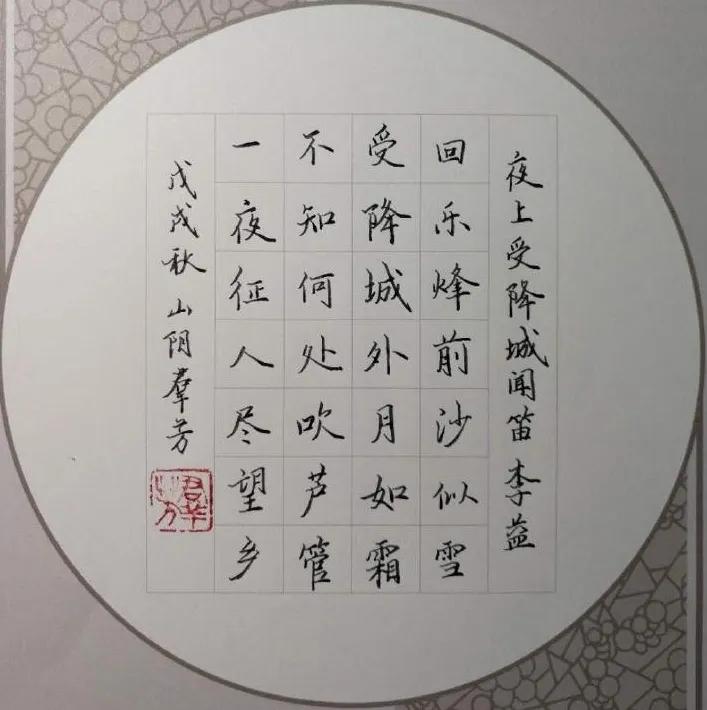 夜上受降城闻笛 李益
回乐烽前沙似雪
受降城外月如霜
不知何处吹芦管
一夜征人尽望乡
戊戌秋 山阴羣芳
羣芳